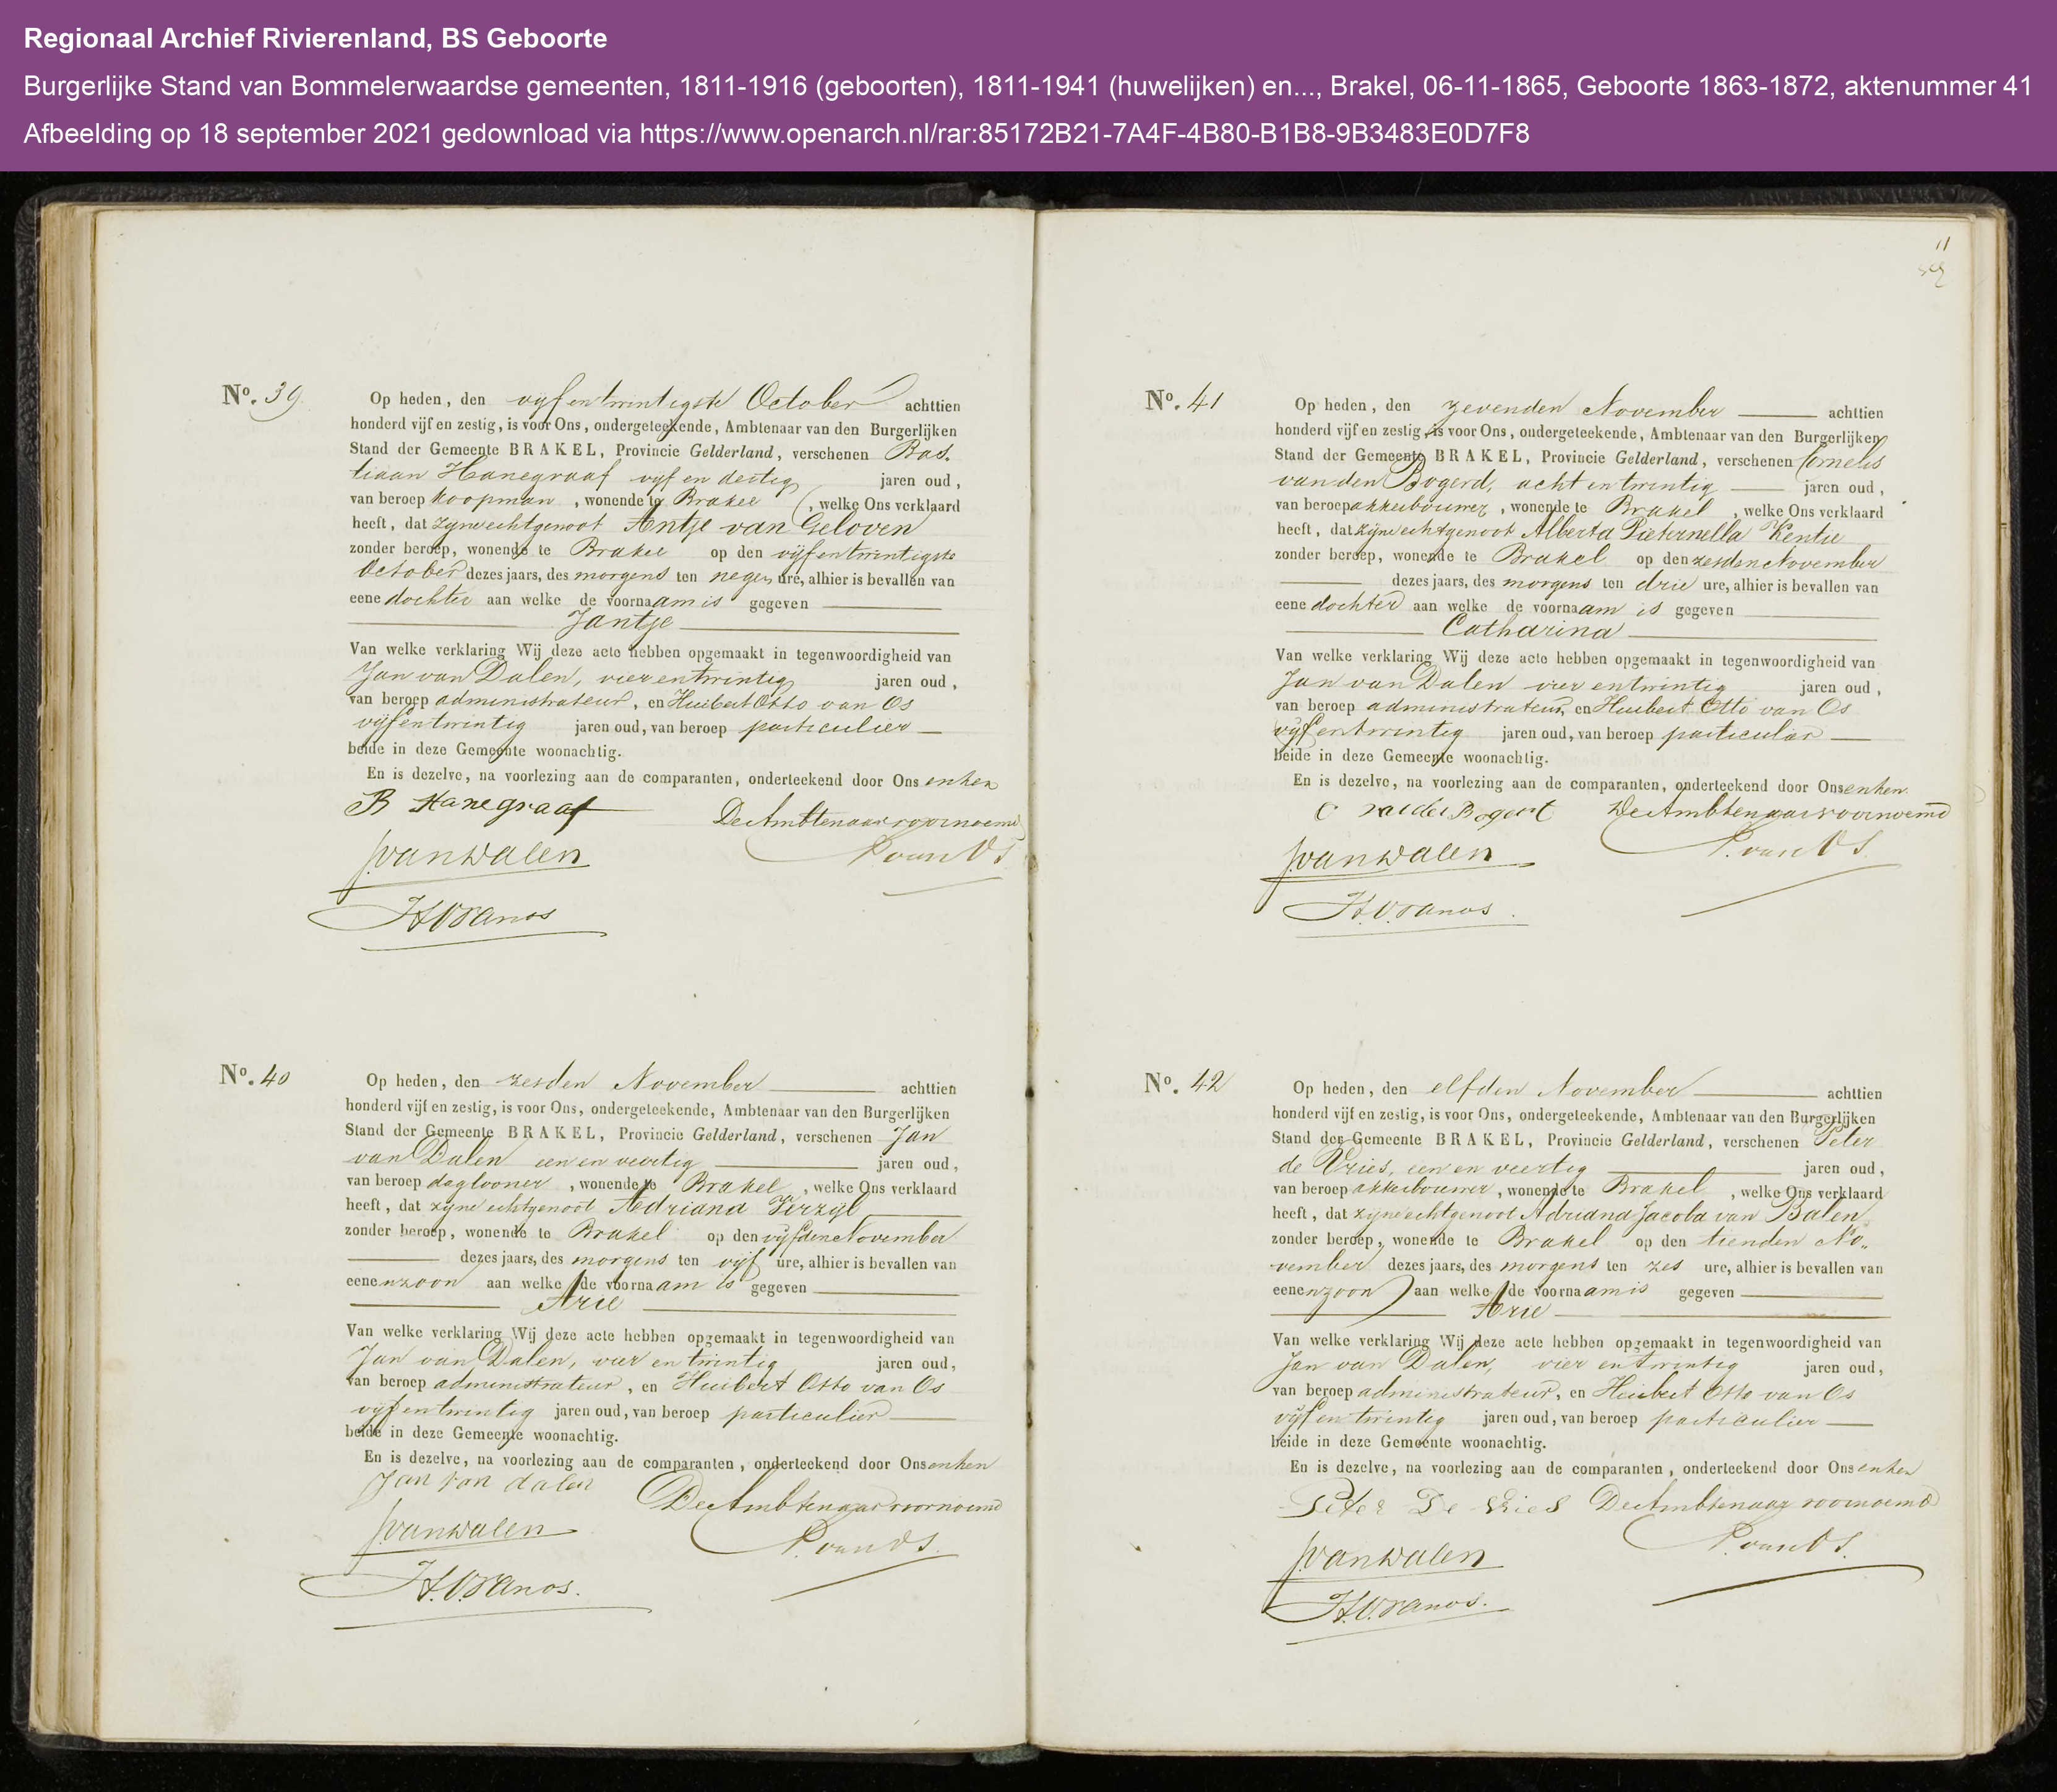 Regionaal Archief Rivierenland, BS Geboorte
Burgerlijke Stand van Bommelerwaardse gemeenten, 1811-1916 (geboorten), 1811-1941 (huwelijken) en..., Brakel, 06-11-1865, Geboorte 1863-1872, aktenummer 41
Afbeelding op 18 september 2021 gedownload via https://www.openarch.nl/rar:85172B21-7A4F-4B80-B1B8-9B3483E0D7F8
No. 39
Op heden, den vijfentwintigste October achttien
honderd vijf en zestig, is voor Ons, ondergeteekende, Ambtenaar van den Burgerlijken
Stand der Gemeente BRAKEL, Provincie Gelderland, verschenen Bas.
tiaan Hanegraaf vijf en dertig jaren oud,
van beroep koopman, wonende te Brakel, welke Ons verklaard
heeft, dat zijne echtgenoot Antje van Geloven
zonder beroep, wonende te Brakel op den vijfentwintigste
October dezes jaars, des morgens ten negen ure, alhier is bevallen van
eene dochter aan welke de voornaam is gegeven
Jantje
Van welke verklaring Wij deze acte hebben opgemaakt in tegenwoordigheid van
Jan van Dalen, vier entwintig jaren oud,
van beroep administrateur, en Huibert Otto van Os
vijfentwintig jaren oud, van beroep particulier
beide in deze Gemeente woonachtig.
En is dezelve, na voorlezing aan de comparanten, onderteekend door Ons en hen
B Hanegraaf
De Ambtenaar voornoemd
J. van Dalen
P. van Os
H.O. van Os
No. 40
Op heden, den zesden November achttien
honderd vijf en zestig, is voor Ons, ondergeteekende, Ambtenaar van den Burgerlijken
Stand der Gemeente BRAKEL, Provincie Gelderland, verschenen Jan
van Dalen een en veertig jaren oud,
van beroep daglooner, wonende te Brakel, welke Ons verklaard
heeft, dat zijne echtgenoot Adriana Verzijl
zonder beroep, wonende te Brakel op den vijfden November
dezes jaars, des morgens ten vijf ure, alhier is bevallen van
eenen zoon aan welke de voornaam is gegeven
Arie
Van welke verklaring Wij deze acte hebben opgemaakt in tegenwoordigheid van
Jan van Dalen, vier en twintig jaren oud,
van beroep administrateur, en Huibert Otto van Os
vijfentwintig jaren oud, van beroep particulier
beide in deze Gemeente woonachtig.
En is dezelve, na voorlezing aan de comparanten, onderteekend door Ons en hen
Jan van dalen
De Ambtenaar voornoemd
J. van Dalen
P. van Os.
H.O. van Os.
11
No. 41
Op heden, den zevenden November achttien
honderd vijf en zestig, is voor Ons, ondergeteekende, Ambtenaar van den Burgerlijken
Stand der Gemeente BRAKEL, Provincie Gelderland, verschenen Cornelis
van den Bogerd, acht en twintig jaren oud,
van beroep akkerbouwer, wonende te Brakel, welke Ons verklaard
heeft, dat zijne echtgenoot Alberta Pieternella Kentie
zonder beroep, wonende te Brakel op den zesden November
dezes jaars, des morgens ten drie ure, alhier is bevallen van
eene dochter aan welke de voornaam is gegeven
Catharina
Van welke verklaring Wij deze acte hebben opgemaakt in tegenwoordigheid van
Jan van Dalen vier entwintig jaren oud,
van beroep administrateur, en Huibert Otto van Os
vijfentwintig jaren oud, van beroep particulier
beide in deze Gemeente woonachtig.
En is dezelve, na voorlezing aan de comparanten, onderteekend door Ons en hen.
C van den Bogert
De Ambtenaar voornoemd
J. van Dalen
P. van Os.
H.O. van Os.
No. 42
Op heden, den elfden November achttien
honderd vijf en zestig, is voor Ons, ondergeteekende, Ambtenaar van den Burgerlijken
Stand der Gemeente BRAKEL, Provincie Gelderland, verschenen Peter
de Vries, een en veertig jaren oud,
van beroep akkerbouwer, wonende te Brakel, welke Ons verklaard
heeft, dat zijne echtgenoot Adriana Jacoba van Balen
zonder beroep, wonende te Brakel op den tienden No„
vember dezes jaars, des morgens ten zes ure, alhier is bevallen van
eenen zoon aan welke de voornaam is gegeven
Arie
Van welke verklaring Wij deze acte hebben opgemaakt in tegenwoordigheid van
Jan van Dalen, vier entwintig jaren oud,
van beroep administrateur, en Huibert Otto van Os
vijf en twintig jaren oud, van beroep particulier
beide in deze Gemeente woonachtig.
En is dezelve, na voorlezing aan de comparanten, onderteekend door Ons en hen
Peter De Vries
De Ambtenaar voornoemd
J. van Dalen
P. van Os.
H.O. van Os.